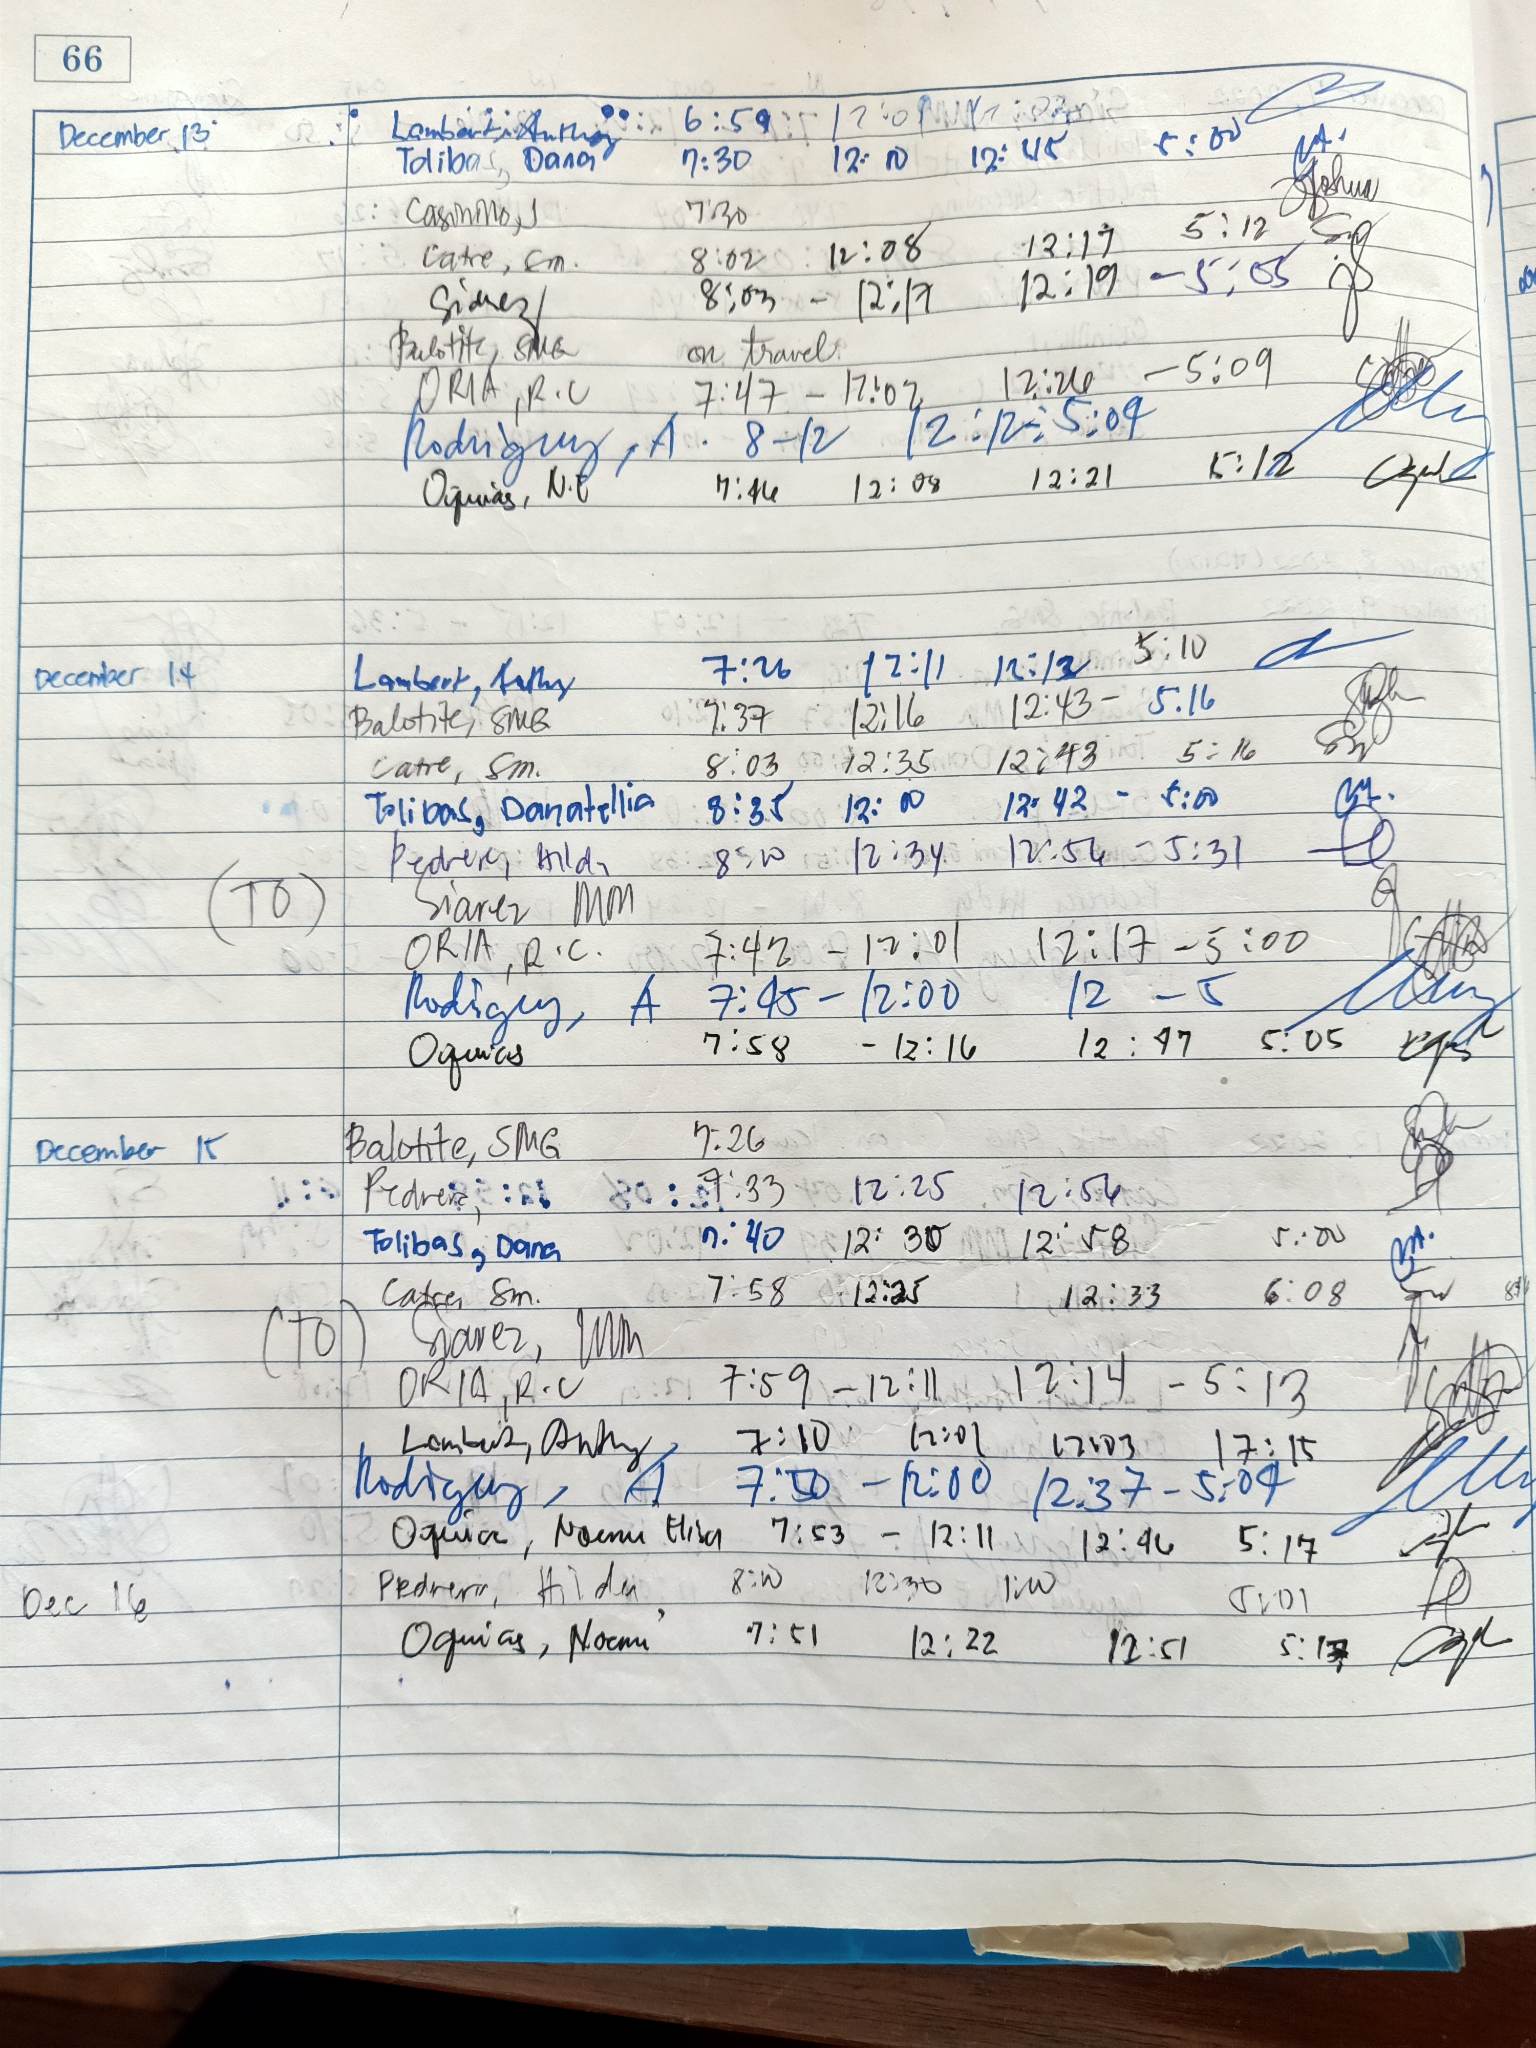 66
December 13 Lambert, Anthony 6:59 12:01
Tolibas, Dana 7:30 12:00 12:45 5:00
Casinillo, J 7:30 Joshua
Catre, Sm. 8:02 12:08 12:17 5:12
Siarez 8:03 - 12:17 12:19 - 5:05
Balotite, SMG on travel
ORIA, R.C 7:47 - 12:02 12:26 - 5:09
Rodriguez, A. 8-12 12:12 - 5:04
Oquias, N.E 7:46 12:08 12:21 5:12
December 14 Lambert, Anthy 7:26 12:11 12:12 5:10
Balotite, SMG 7:37 12:16 12:43 - 5.16
Catre, Sm. 8:03 12:35 12:43 5:16
Tolibas, Danatellia 8:35 12:00 12:42 - 5:00
Pedrera, Hilda 8:10 12:34 12:54 - 5:31
(TO) Siarez MM
ORIA, R.C. 7:42 - 12:01 12:17 - 5:00
Rodriguez, A 7:45 - 12:00 12 - 5
Oquias 7:58 - 12:16 12:47 5:05
December 15 Balotite, SMG 7:26
Pedrera, 7:33 12:25 12:54
Tolibas, Dana 7:40 12:30 12:58 5:00
Catre, Sm. 7:58 12:25 12:33 6:08
(TO) Siarez, MM
ORIA, R.C 7:59 - 12:11 12:14 - 5:13
Lambert, Anthy 7:10 12:01 12:03 17:15
Rodriguez, A 7:50 - 12:00 12:37 - 5:04
Oquias, Noemi Elisa 7:53 - 12:11 12:46 5:17
Dec 16 Pedrera, Hilda 8:10 12:30 1:00 5:01
Oquias, Noemi 7:51 12:22 12:51 5:17